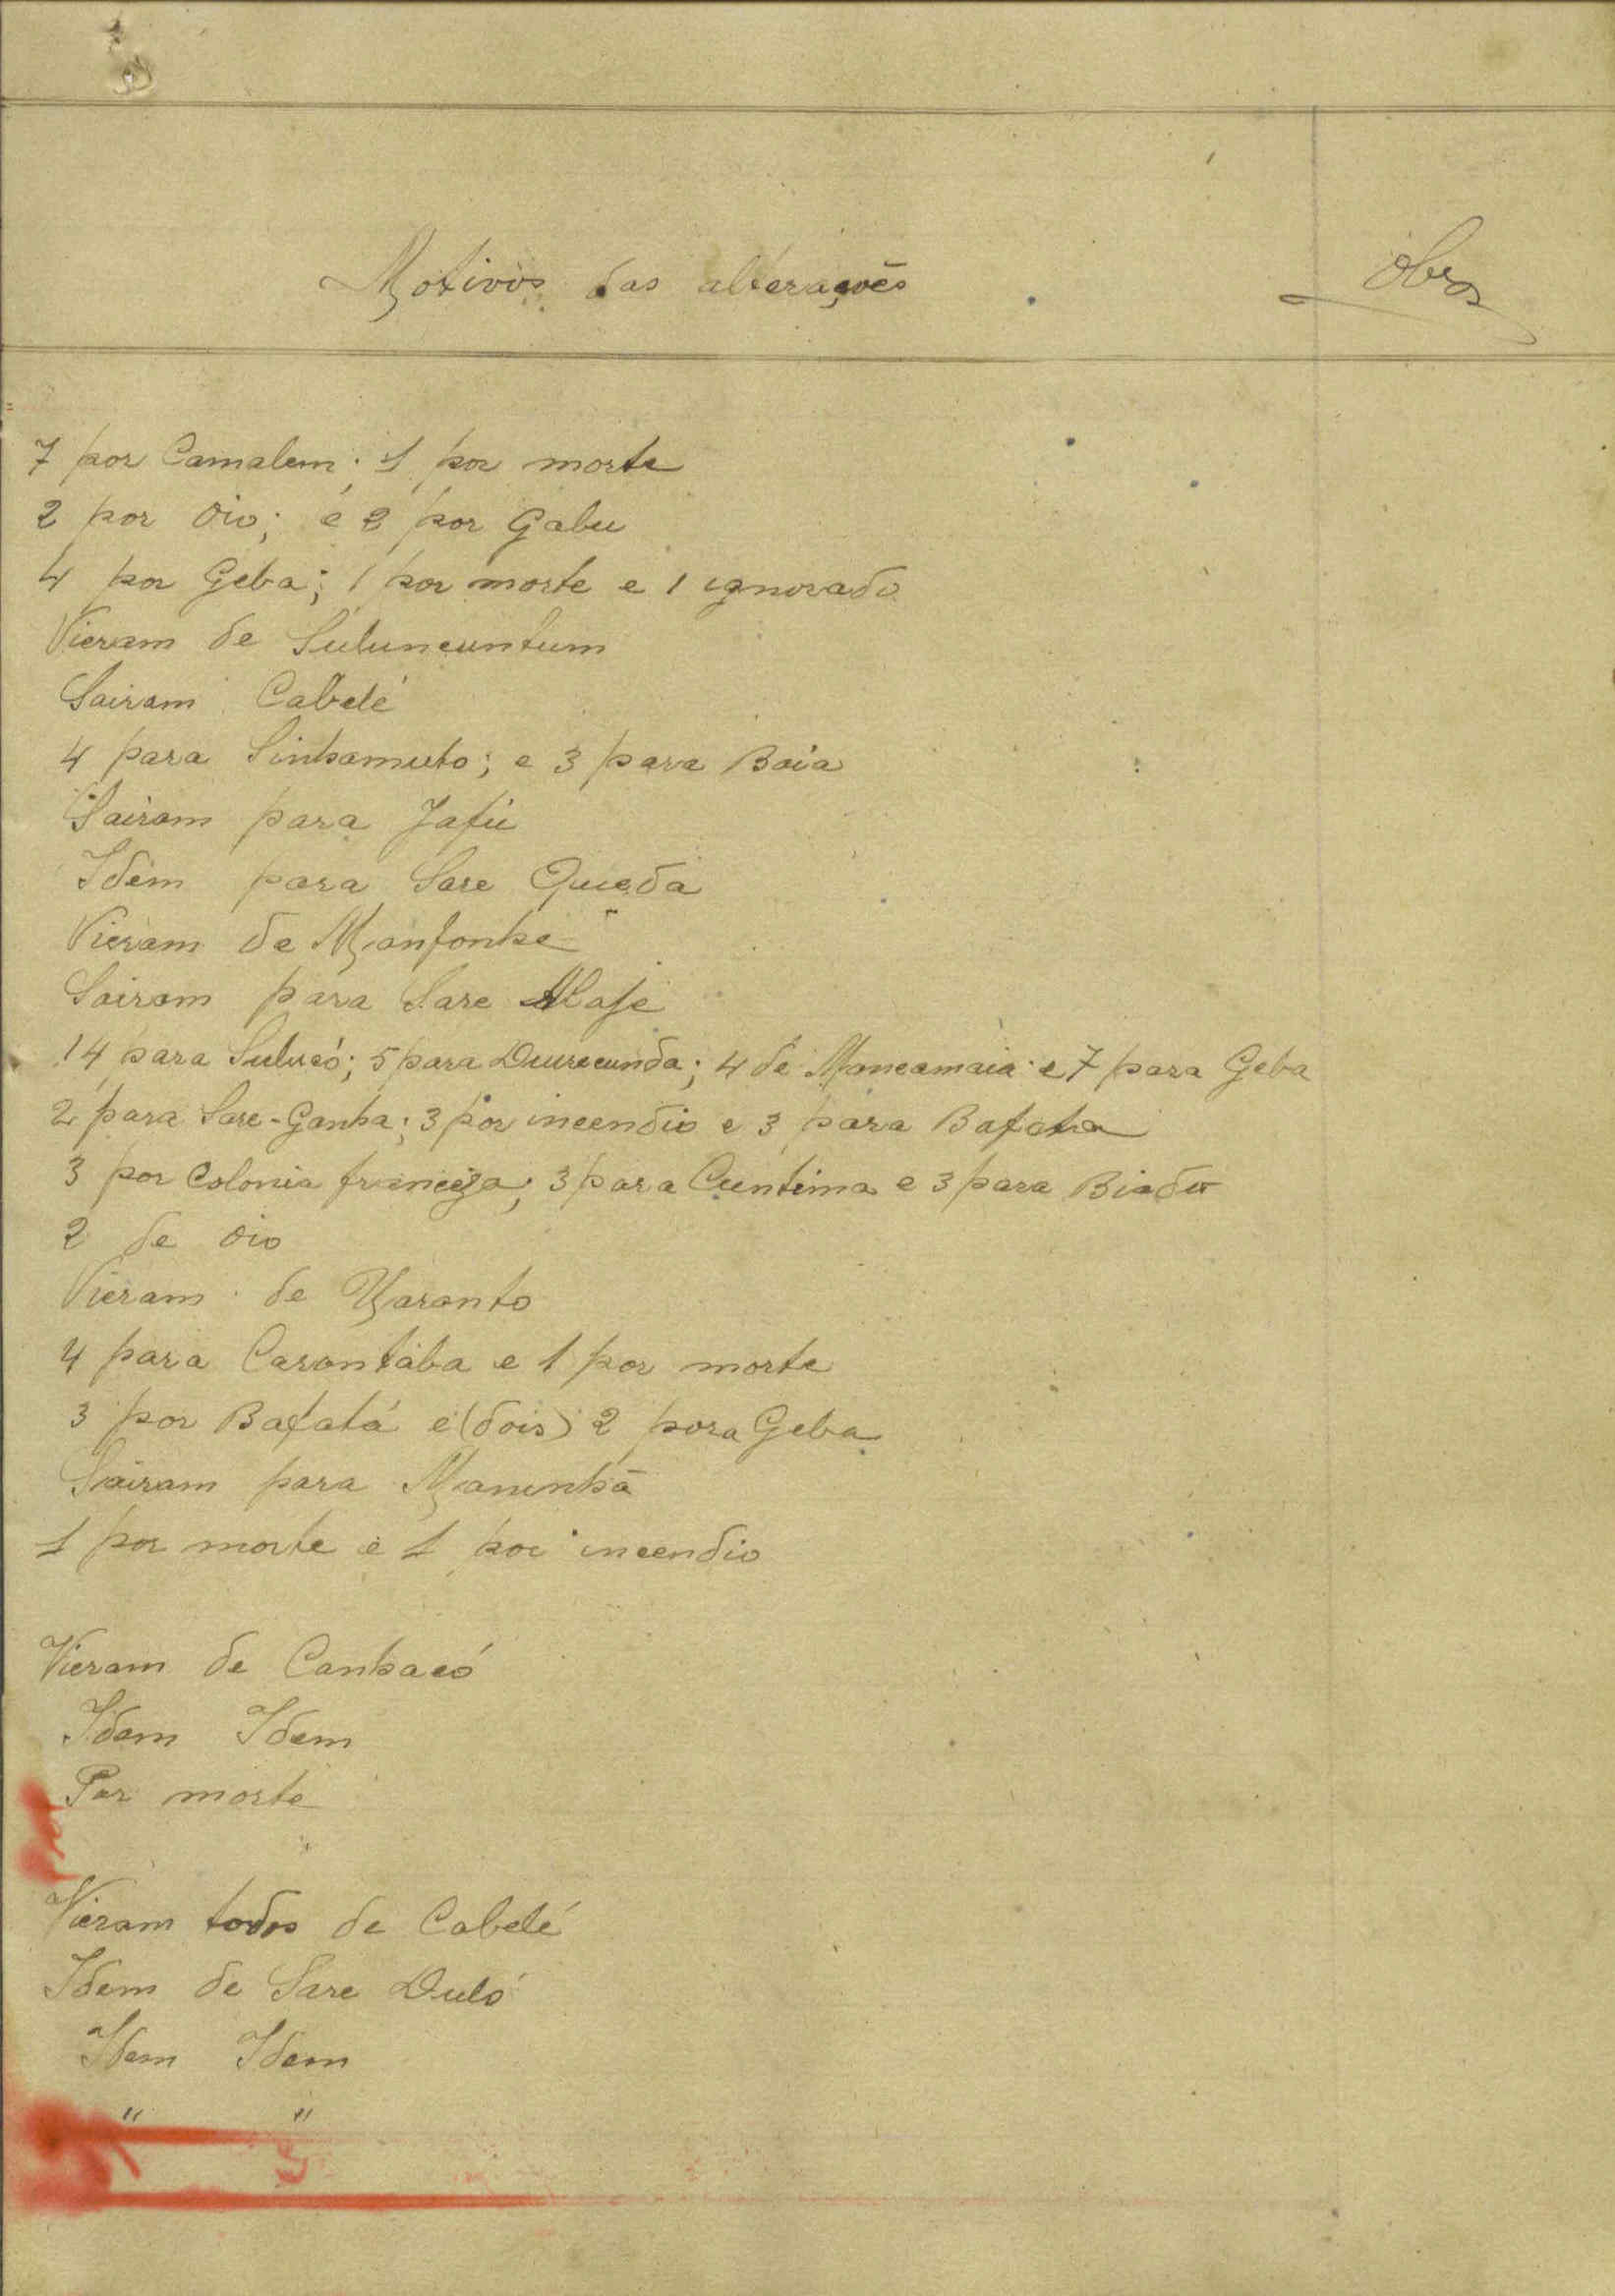 Motivos das alterações
Obs
7 por Camalem; 1 por morte
2 por Oio; e 2 por Gabu
4 por Geba; 1 por morte e 1 ignorado
Vieram de Suluncuntum
Sairam Cabelé
4 para Sinhamuto; e 3 para Baia
Sairam para Jafú
Idem para Sare Queda
Vieram de Manfonhe
Sairam para Sare
14 para Sulucó; 5 para Durecunda; 4 de Mancamaia e 7 para Geba
2 para Sare-Ganha; 3 por incendio e 3 para Bafata
3 por Colonia franceza; 3 para Cuntima e 3 para Biadu
2 de Oio
Vieram de
4 para Carantaba e 1 por morte
3 por Bafatá e (dois) 2 pora Geba
Sairam para Maninhã
1 por morte e 1 por incendio
Vieram de Canhacó
Idem Idem
Por morte
Vieram todos de Cabelé
Idem de Sare Duló
Idem Idem
" "